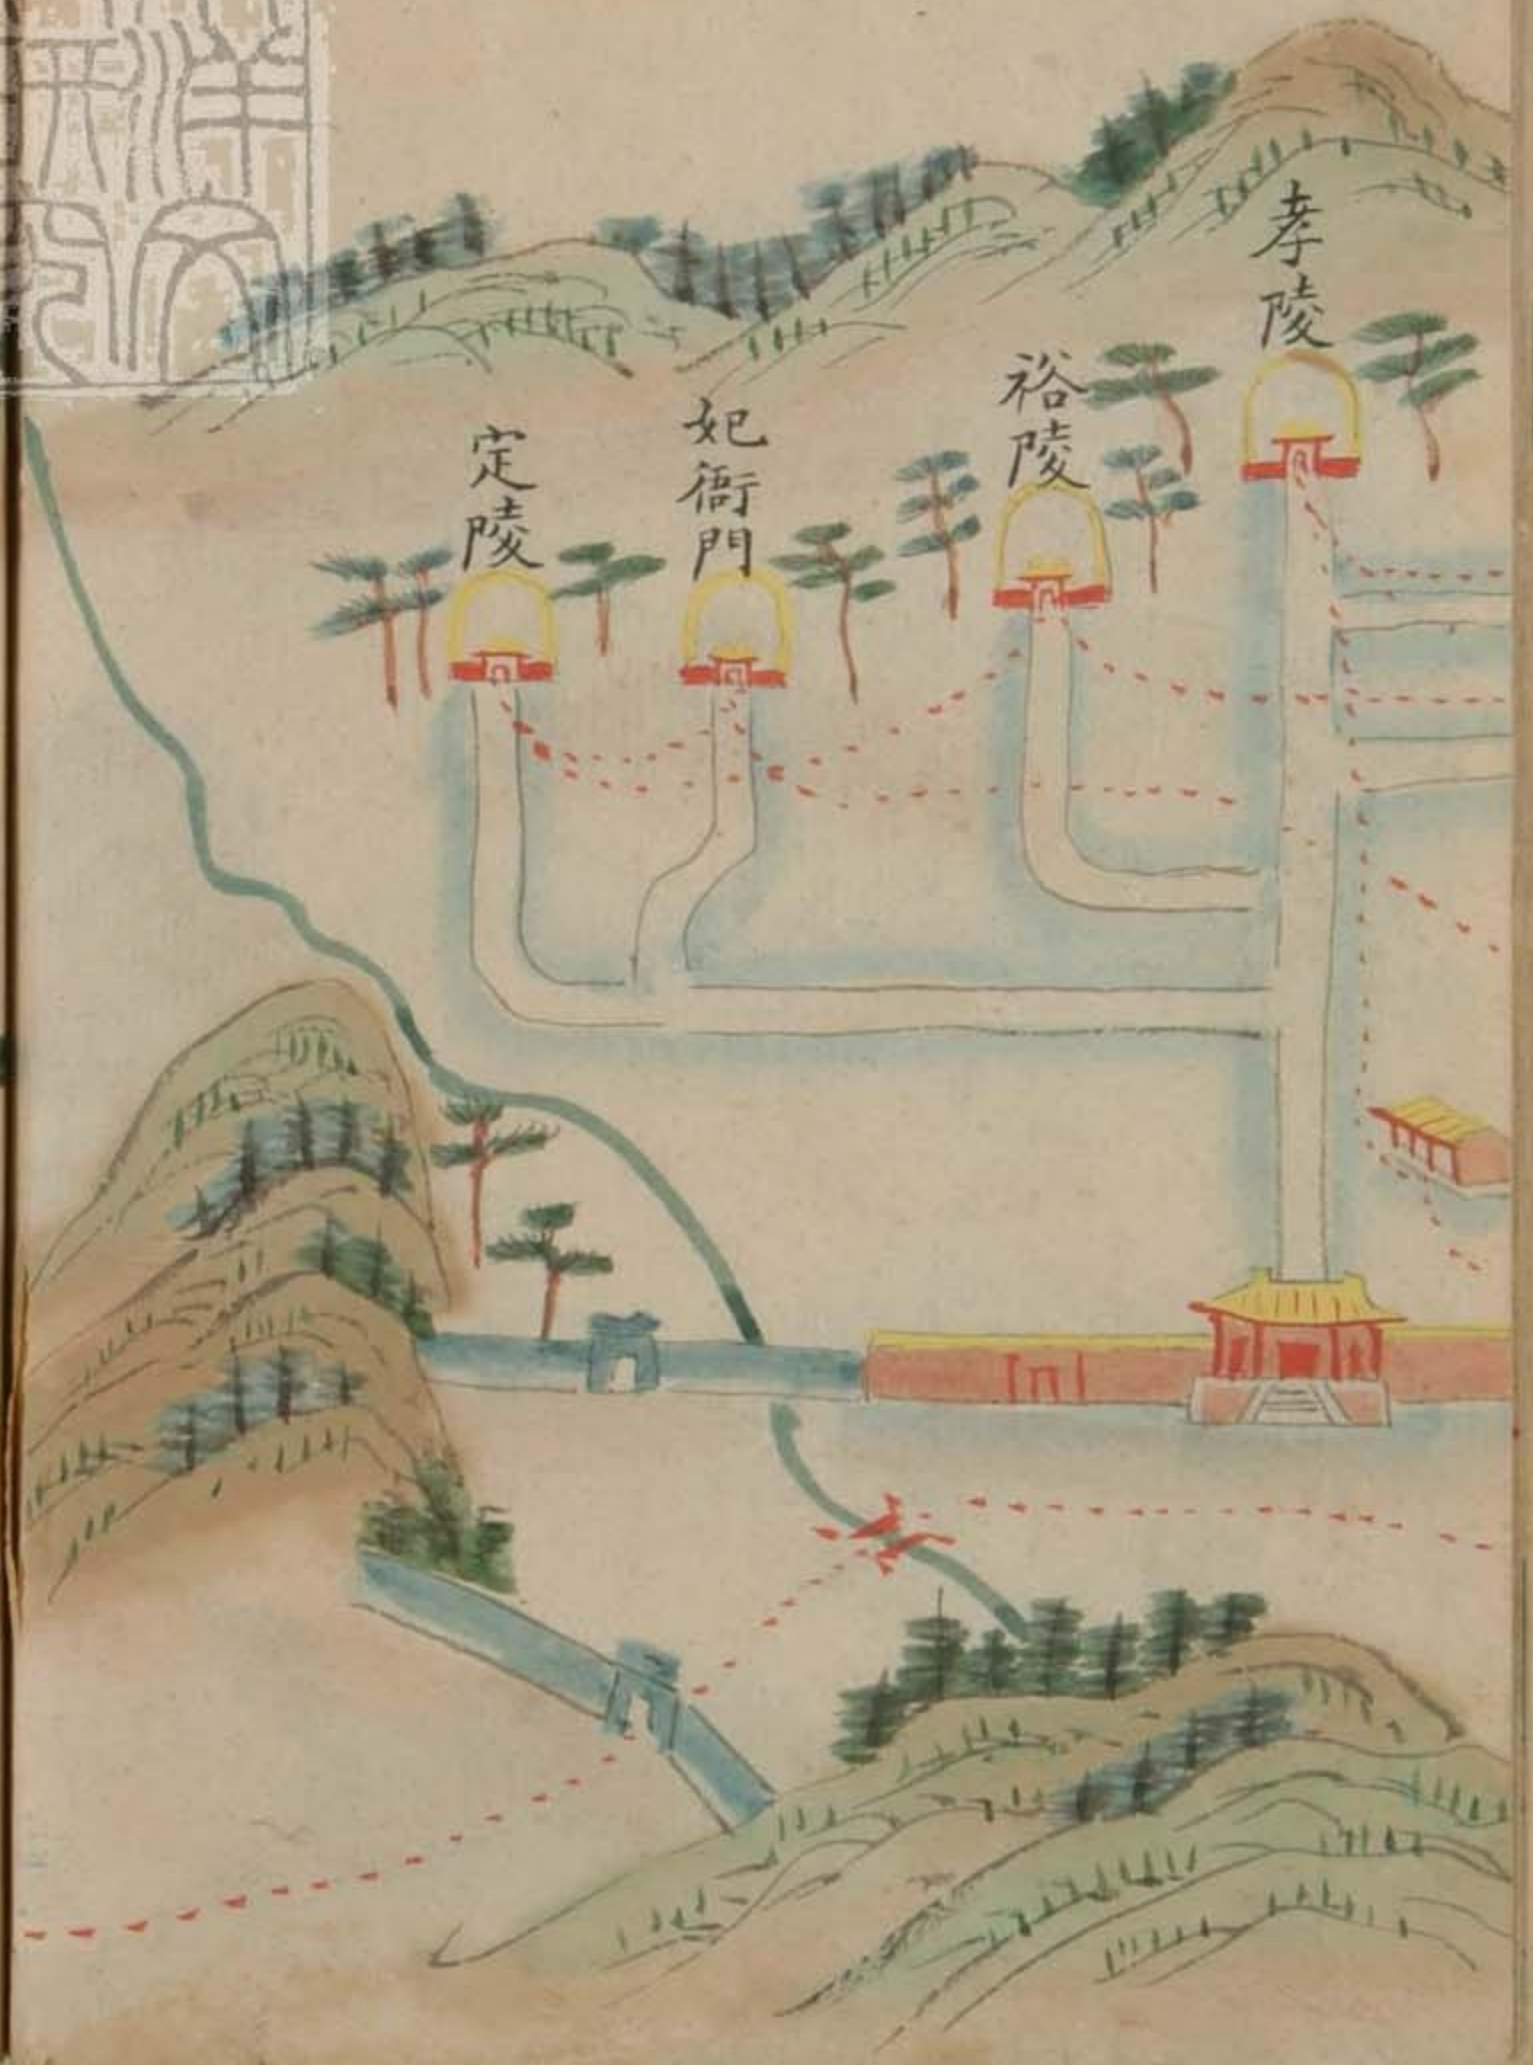 孝陵
裕陵
妃衙門
定陵